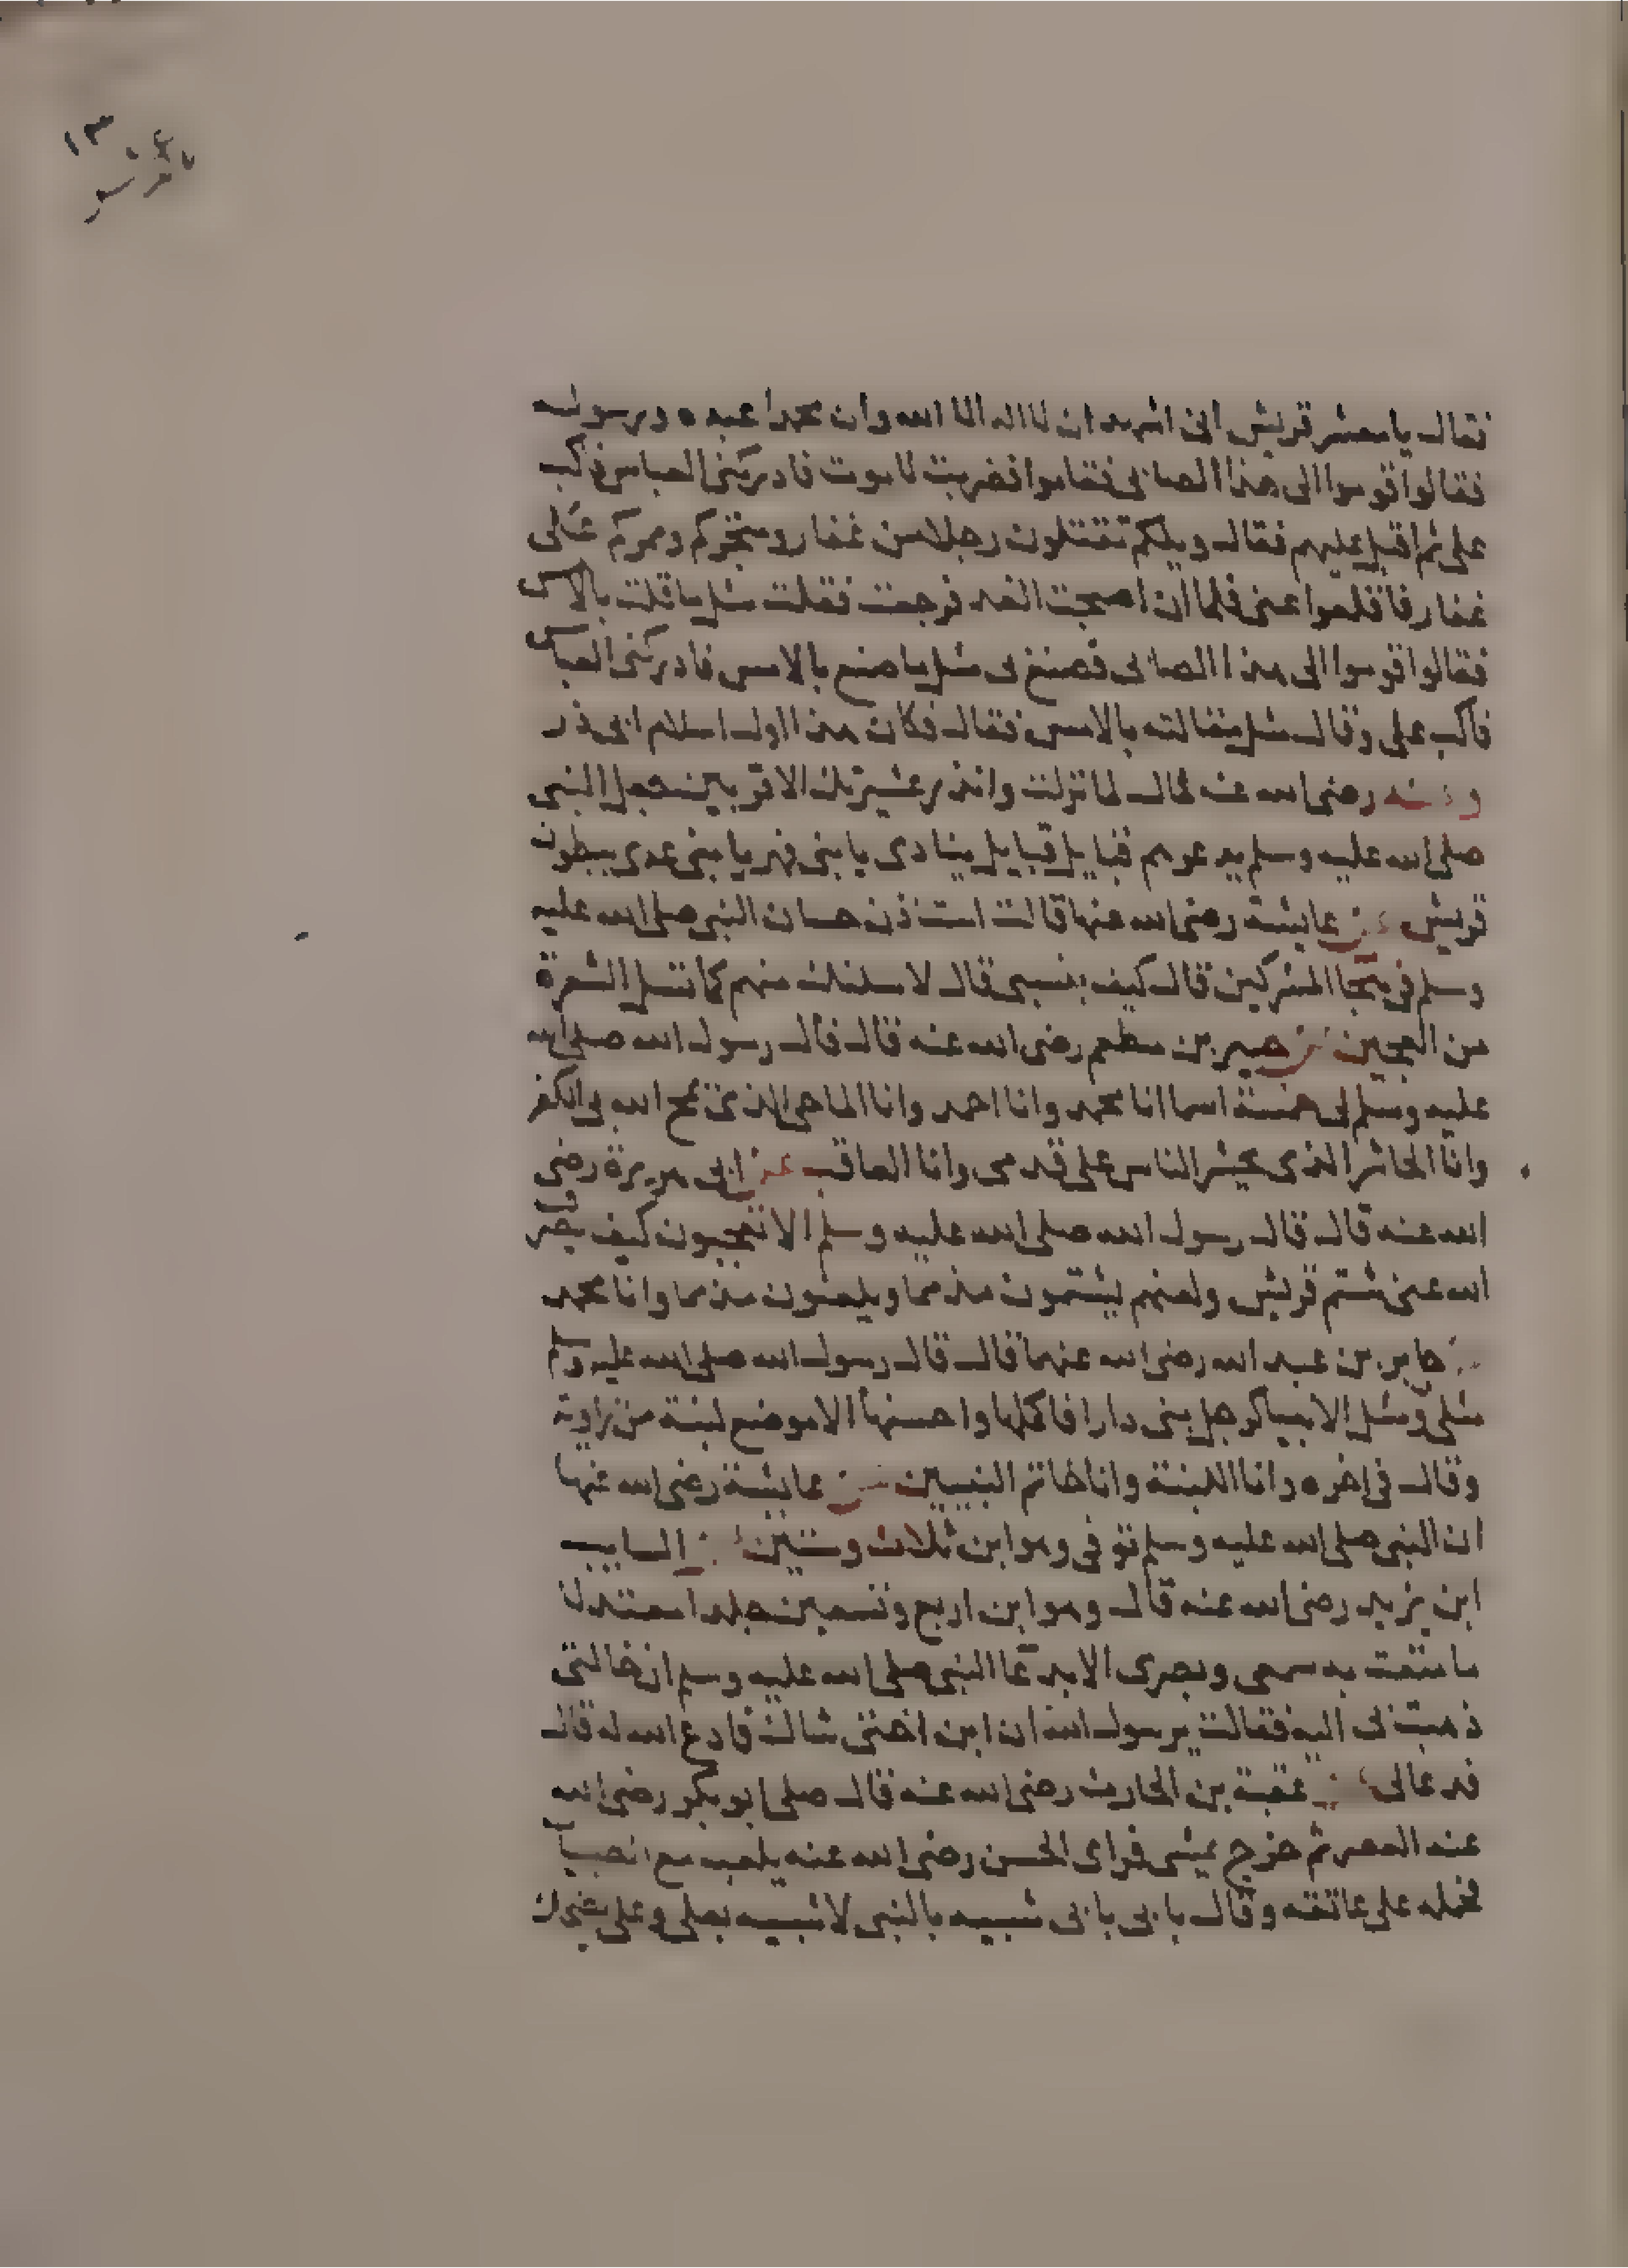 فقال يا معشر قريش انى اشهد ان لا اله الا الله وان محمدا عبده ورسوله
فقالوا قوموا الى هذا الصابى فقاموا فضربت لاموت فادركنى العباس فاكب
على ثم اقبل عليهم فقال ويلكم تقتلون رجلا من غفار ومتجركم وممركم على
غفار فاقلعوا عنى فلما ان اصبحت الغد فرجعت فقلت مثل ما قلت بالامس
فقالوا قوموا الى هذا الصابى فصنع بى مثل ما صنع بالامس فادركنى العباس
فاكب على وقال مثل مقالته بالامس فقال فكان هذا اول اسلام ابى ذر
وعنه رضى الله عنه قال لما نزلت وانذر عشيرتك الاقربين جعل النبى
صلى الله عليه وسلم يدعوهم قبايل قبايل ينادى يا بنى فهر يا بنى عدى ببطون
قريش عن عايشة رضى الله عنها قالت استاذن حسان النبى صلى الله عليه
وسلم فى هجا المشركين قال كيف بنسبى قال لاسلنك منهم كما تسل الشعرة
من العجين عن جبير بن مطعم رضى الله عنه قال قال رسول الله صلى الله
عليه وسلم لى خمسة اسما انا محمد وانا احمد وانا الماحى الذى يمح الله بى الكفر
وانا الحاشر الذى يحشر الناس على قدمى وانا العاقب عن ابى هريرة رضى
الله عنه قال قال رسول الله صلى الله عليه وسلم الا تعجبون كيف يصرف
الله عنى شتم قريش ولعنهم يشتمون مذمما ويلعنون مذمما وانا محمد
عن جابر بن عبد الله رضى الله عنهما قال قال رسول الله صلى الله عليه وسلم
مثلى ومثل الانبيا كرجل بنى دارا فاكملها واحسنها الا موضع لبنة من زاوية
وقال فى اخره وانا اللبنة وانا خاتم النبيين عن عايشة رضى الله عنها
ان النبى صلى الله عليه وسلم توفى وهو ابن ثلاث وستين عن السايب
ابن يزيد رضى الله عنه قال وهو ابن اربع وتسعين جلدا معتدلا
ما متعت به سمعى وبصرى الا بدعا النبى صلى الله عليه وسلم ان خالتى
ذهبت بى اليه فقالت يرسول الله ان ابن اختى شاك فادع الله له قال
فدعا لى عن عقبة بن الحارث رضى الله عنه قال صلى ابو بكر رضى الله
عنه العصر ثم خرج يمشى فراى الحسن رضى الله عنه يلعب مع الصبيان
فحمله على عاتقه وقال بابى بابى شبيه بالنبى لا شبيه بعلى وعلى يضحك